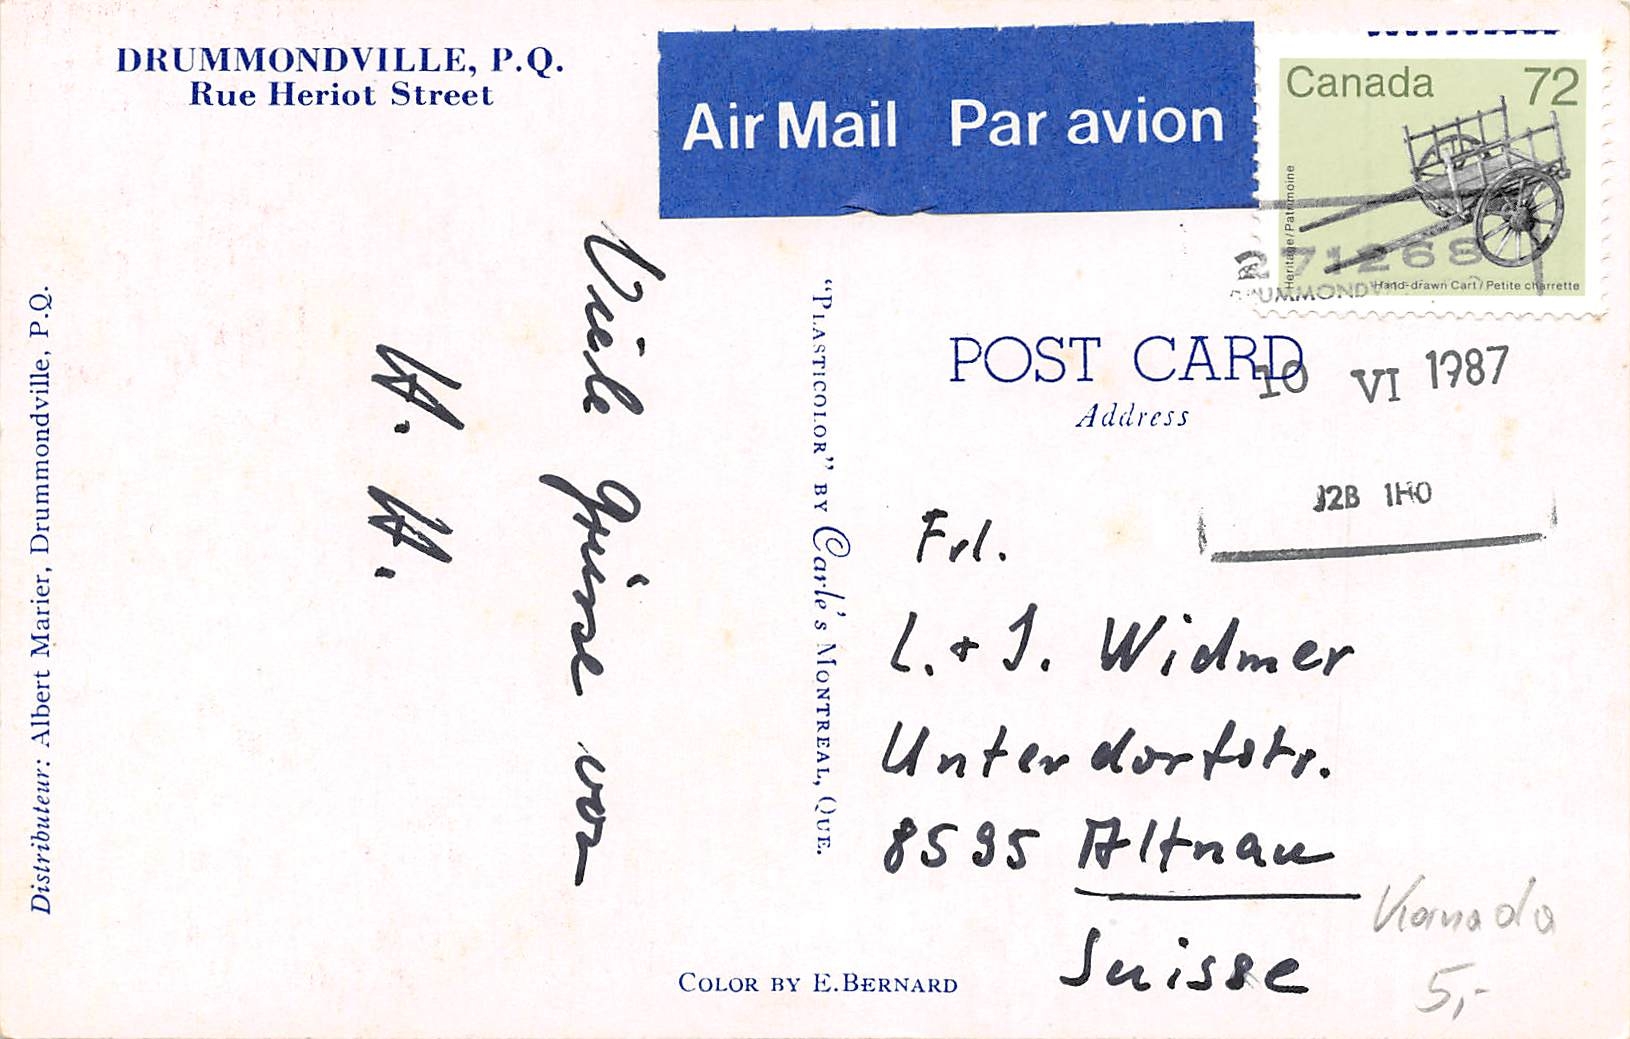 DRUMMONDVILLE, P.Q.
Rue Heriot Street
Air Mail Par avion
Canada 72
Heritage/Patrimoine
Hand-drawn Cart/Petite charrette
271268
DRUMMONDV
10 VI 1987
J2B 1H0
POST CARD
Address
Viele Grüsse von
H. H.
Frl.
L. + J. Widmer
Unterdorfstr.
8595 Altnau
Suisse
Kanada
5,-
Distributeur: Albert Marier, Drummondville, P.Q.
"PLASTICOLOR" BY Carle's MONTREAL, QUE.
COLOR BY E.BERNARD